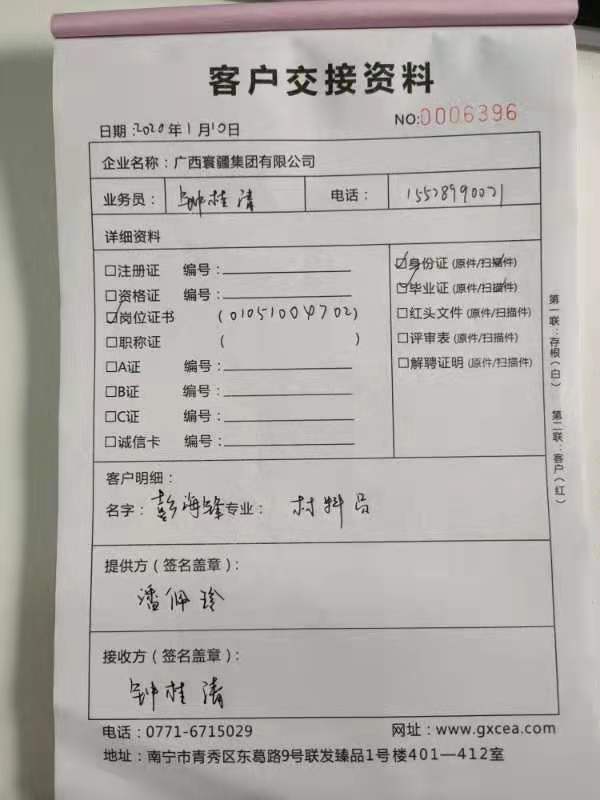 客户交接资料
NO:0006396
日期:2020年1月10日
企业名称:广西寰疆集团有限公司
业务员: 钟桂清 电话: 15578990071
详细资料
☐注册证 编号:
☐资格证 编号:
☑岗位证书 (01051004702)
☐职称证 ( )
☐A证 编号:
☐B证 编号:
☐C证 编号:
☐诚信卡 编号:
☑身份证 (原件/扫描件)
☑毕业证 (原件/扫描件)
☐红头文件 (原件/扫描件)
☐评审表 (原件/扫描件)
☐解聘证明 (原件/扫描件)
第一联:存根(白) 第二联:客户(红)
客户明细:
名字:彭海锋 专业: 材料员
提供方(签名盖章):
潘佩玲
接收方(签名盖章):
钟桂清
电话:0771-6715029 网址:www.gxcea.com
地址:南宁市青秀区东葛路9号联发臻品1号楼401—412室